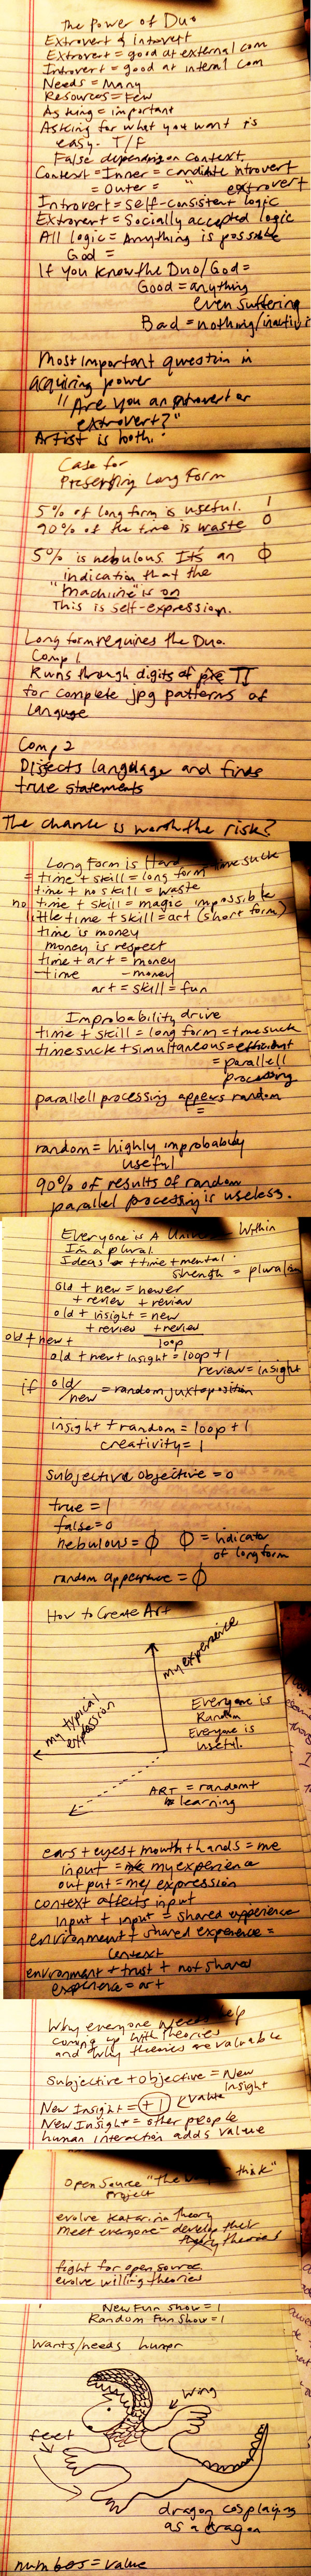 The Power of Duo
Extrovert & introvert
Extrovert = good at external com
Introvert = good at internal com
Needs = Many
Resources = Few
Asking = important
Asking for what you want is
easy. T/F
False depending on context.
Context = Inner = candidate introvert
= Outer = " extrovert
Introvert = Self-consistent logic
Extrovert = Socially accepted logic
All logic = Anything is possible
God =
If you know the Duo/God =
Good = anything
even suffering
Bad = nothing/inactivi
Most important question in
acquiring power
"Are you an introvert or
extrovert?"
Artist is both.
Case for
Preserving Long Form
5% of long form is useful. 1
90% of the time is waste 0
5% is nebulous. It's an ϕ
indication that the
"machine" is on
This is self-expression.
Long form requires the Duo.
Comp 1.
Runs through digits of π
for complete jpg patterns of
language
Comp 2
Disects language and finds
true statements
The chance is worth the risk?
Long Form is Hard
= time + skill = long form time suck
time + no skill = waste
no time + skill = magic impossible
little time + skill = art (short form)
time is money
money is respect
time + art = money
-time -money
art = skill = fun
Improbability drive
time + skill = long form = time suck
time suck + simultaneous = efficient
= parallell
processing
parallell processing appears random
=
random = highly improbabably
useful
90% of results of random
parallel processing is useless.
Everyone is A Universe Within
I'm a plural.
Ideas + time + mental
strength = pluralism
old + new = newer
+ review + review
old + insight = new
+ review + review
old + new + loop
old + new + insight = loop + 1
review = insight
if old/new = random juxtaposition
insight + random = loop + 1
creativity = 1
subjective objective = 0
true = 1
false = 0
nebulous = ϕ ϕ = indicator
of long form
random appearance = ϕ
How to Create Art
my experience
my typical
expression
Everyone is
Random
Everyone is
useful.
ART = random +
learning
ears + eyes + mouth + hands = me
input = my experience
output = my expression
context affects input
input + input = shared experience
environment + shared experience =
context
environment + trust + not shared
experience = art
Why everyone needs help
coming up with theories
and why theories are valuable
Subjective + objective = New
insight
New Insight = +1 value
New Insight = other people
human interaction adds value
Open Source "the way think"
Project
evolve theory
meet everyone - develop their
theories
fight for open source.
evolve willing theories
New Fun Show = 1
Random Fun Show = 1
Wants/needs humor
wing
feet
dragon cosplaying
as a dragon
numbers = value